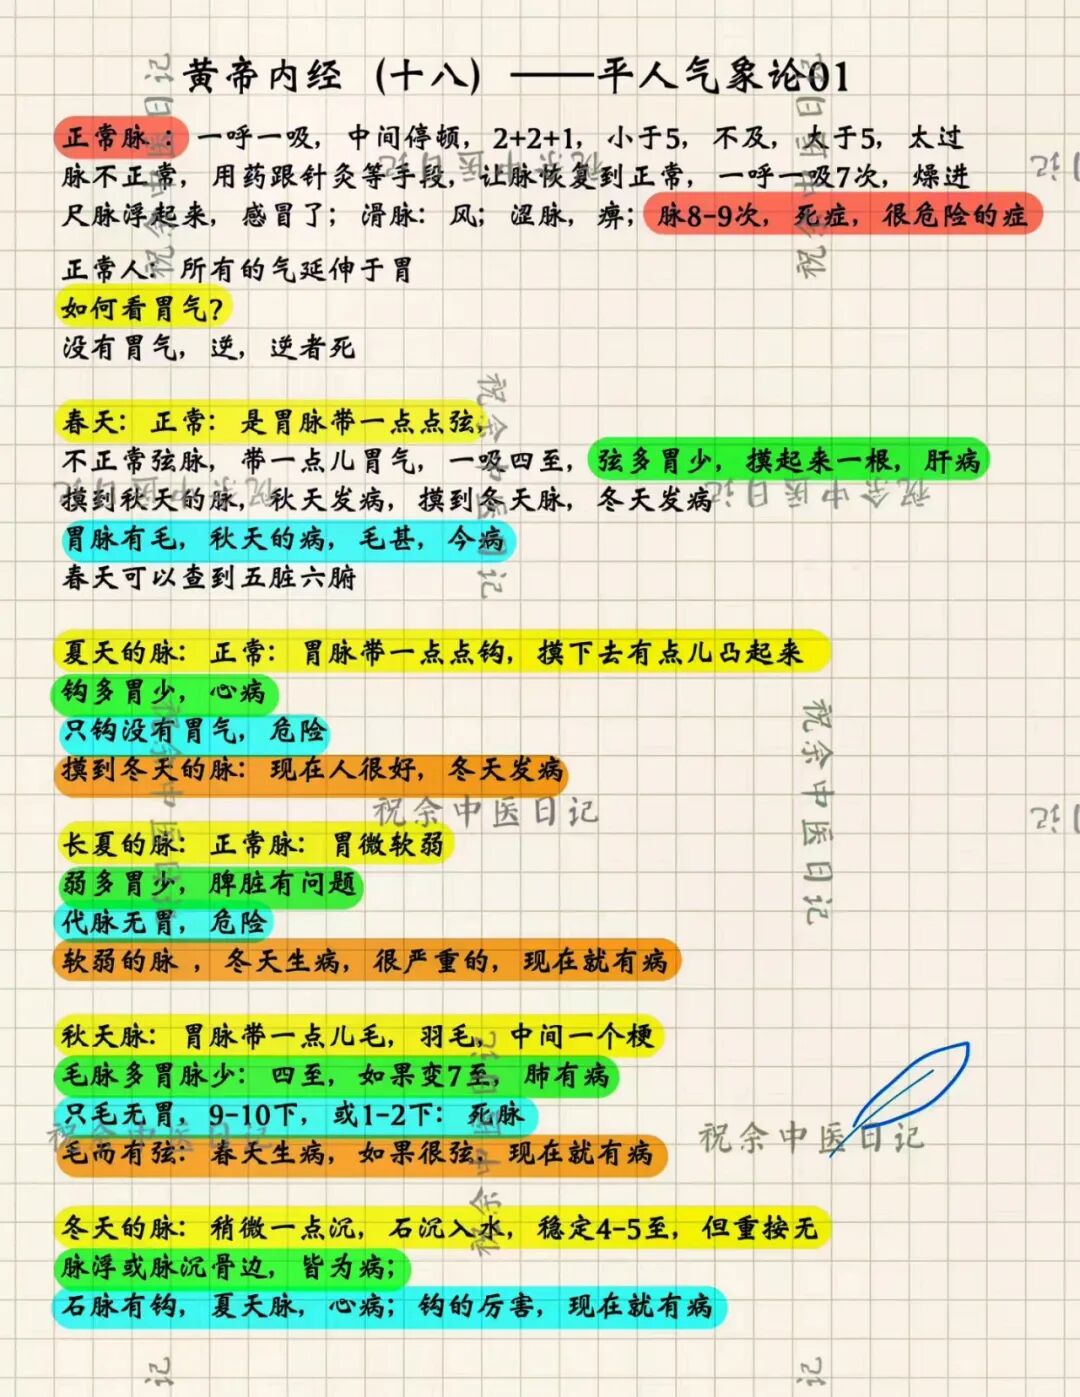 黄帝内经（十八）——平人气象论01
正常脉：一呼一吸，中间停顿，2+2+1，小于5，不及，大于5，太过
脉不正常，用药跟针灸等手段，让脉恢复到正常，一呼一吸7次，燥进
尺脉浮起来，感冒了；滑脉：风；涩脉，痹；脉8-9次，死症，很危险的症
正常人：所有的气延伸于胃
如何看胃气？
没有胃气，逆，逆者死
春天：正常：是胃脉带一点点弦，
不正常弦脉，带一点儿胃气，一吸四至，弦多胃少，摸起来一根，肝病
摸到秋天的脉，秋天发病，摸到冬天脉，冬天发病
胃脉有毛，秋天的病，毛甚，今病
春天可以查到五脏六腑
夏天的脉：正常：胃脉带一点点钩，摸下去有点儿凸起来
钩多胃少，心病
只钩没有胃气，危险
摸到冬天的脉：现在人很好，冬天发病
长夏的脉：正常脉：胃微软弱
弱多胃少，脾脏有问题
代脉无胃，危险
软弱的脉，冬天生病，很严重的，现在就有病
秋天脉：胃脉带一点儿毛，羽毛，中间一个梗
毛脉多胃脉少：四至，如果变7至，肺有病
只毛无胃，9-10下，或1-2下：死脉
毛而有弦：春天生病，如果很弦，现在就有病
冬天的脉：稍微一点沉，石沉入水，稳定4-5至，但重按无
脉浮或脉沉骨边，皆为病；
石脉有钩，夏天脉，心病；钩的厉害，现在就有病
祝余中医日记
祝余中医日记
祝余中医日记
祝余中医日记
祝余中医日记
祝余中医日记
祝余中医日记
祝余中医日记
祝余中医日记
祝余中医日记
祝余中医日记
日记
日记
记
记